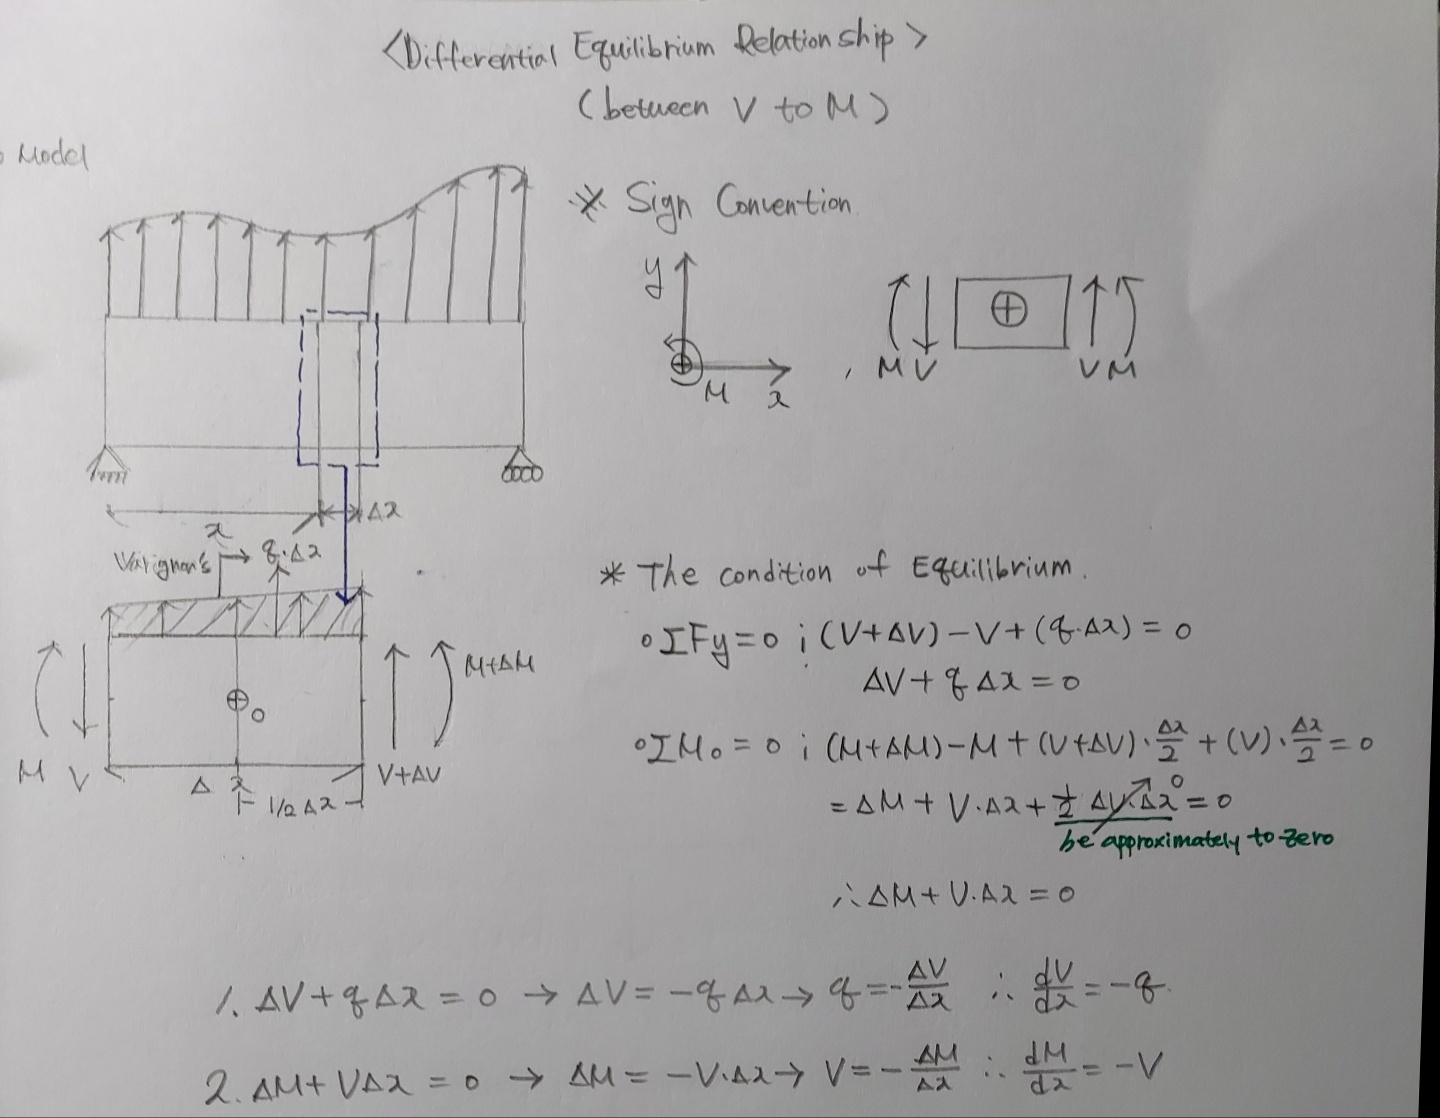 <Differential Equilibrium Relationship>
(between V to M)
Model
* Sign Convention
y
M
x
, M V
⊕
V M
x
Δx
Varignon's
q·Δx
M
V
⊕ o
M+ΔM
V+ΔV
Δx
1/2 Δx
* The condition of Equilibrium.
∘ΣFy=0 ; (V+ΔV)-V+(q·Δx)=0
ΔV+qΔx=0
∘ΣMo=0 ; (M+ΔM)-M+(V+ΔV)·Δx/2+(V)·Δx/2=0
=ΔM+V·Δx+1/2 ΔV·Δx 0 =0
be approximately to zero
∴ΔM+V·Δx=0
1. ΔV+qΔx=0 → ΔV=-qΔx → q=-ΔV/Δx ∴ dV/dx=-q.
2. ΔM+VΔx=0 → ΔM=-V·Δx → V=-ΔM/Δx ∴ dM/dx=-V